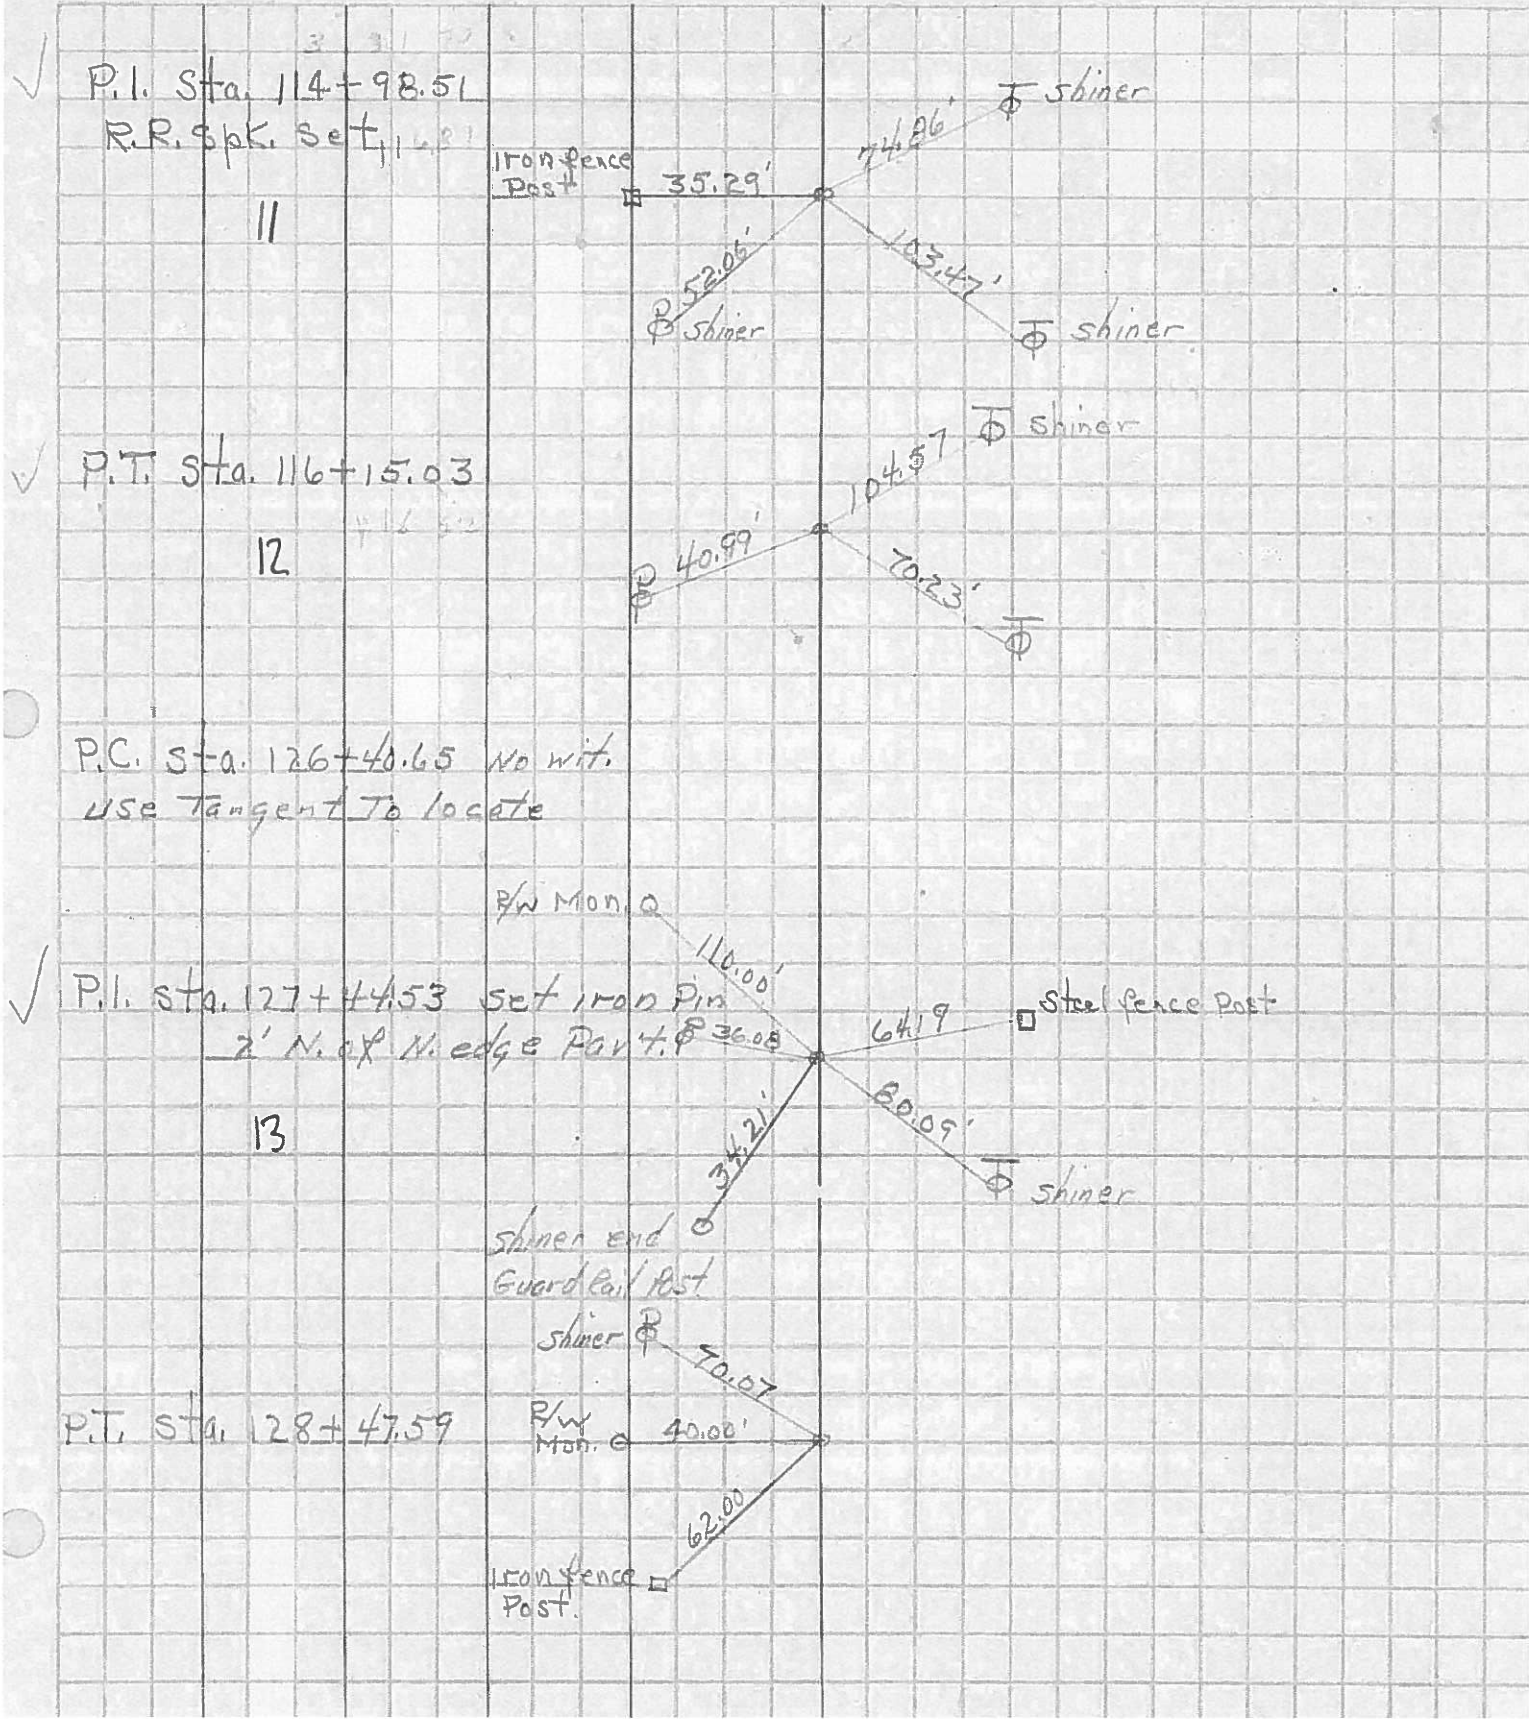 P.I. Sta. 114+98.51
R.R. Spk. Set
11
Iron fence
Post
35.29'
74.86'
shiner
52.06'
P
shiner
103.47'
shiner
P.T. Sta. 116+15.03
12
104.57
shiner
40.99'
P
70.23'
P.C. Sta. 126+40.65 No wit.
Use Tangent To locate
R/W Mon.
110.00'
P.I. Sta. 127+44.53 Set iron Pin
2' N. of N. edge Pav't.
P
36.08
64.19
Steel fence Post
13
34.21'
80.09'
shiner
shiner end
Guard Rail Post
shiner
P
70.07
P.T. Sta. 128+47.59
R/W
Mon.
40.00'
62.00
Iron fence
Post.